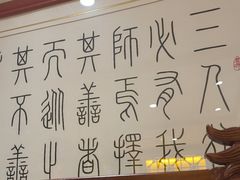 三人行
必有我
師焉擇
其善者
而從之
其不善